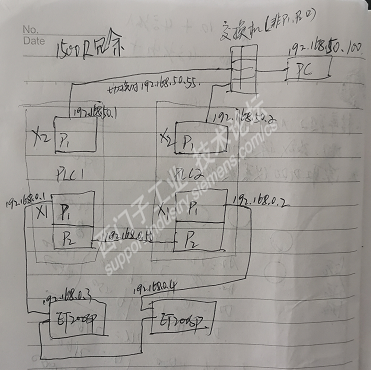 No.
Date
1500R冗余
交换机(非Pn口)
192.168.50.100
PC
192.168.50.55
192.168.50.1
192.168.50.2
X2
P1
X2
P1
PLC1
PLC2
192.168.0.1
X1
P1
P2
X1
P1
P2
192.168.0.2
192.168.0.55
西门子工业技术论坛
support.industry.siemens.com/cs
192.168.0.3
ET200SP
192.168.0.4
ET200SP